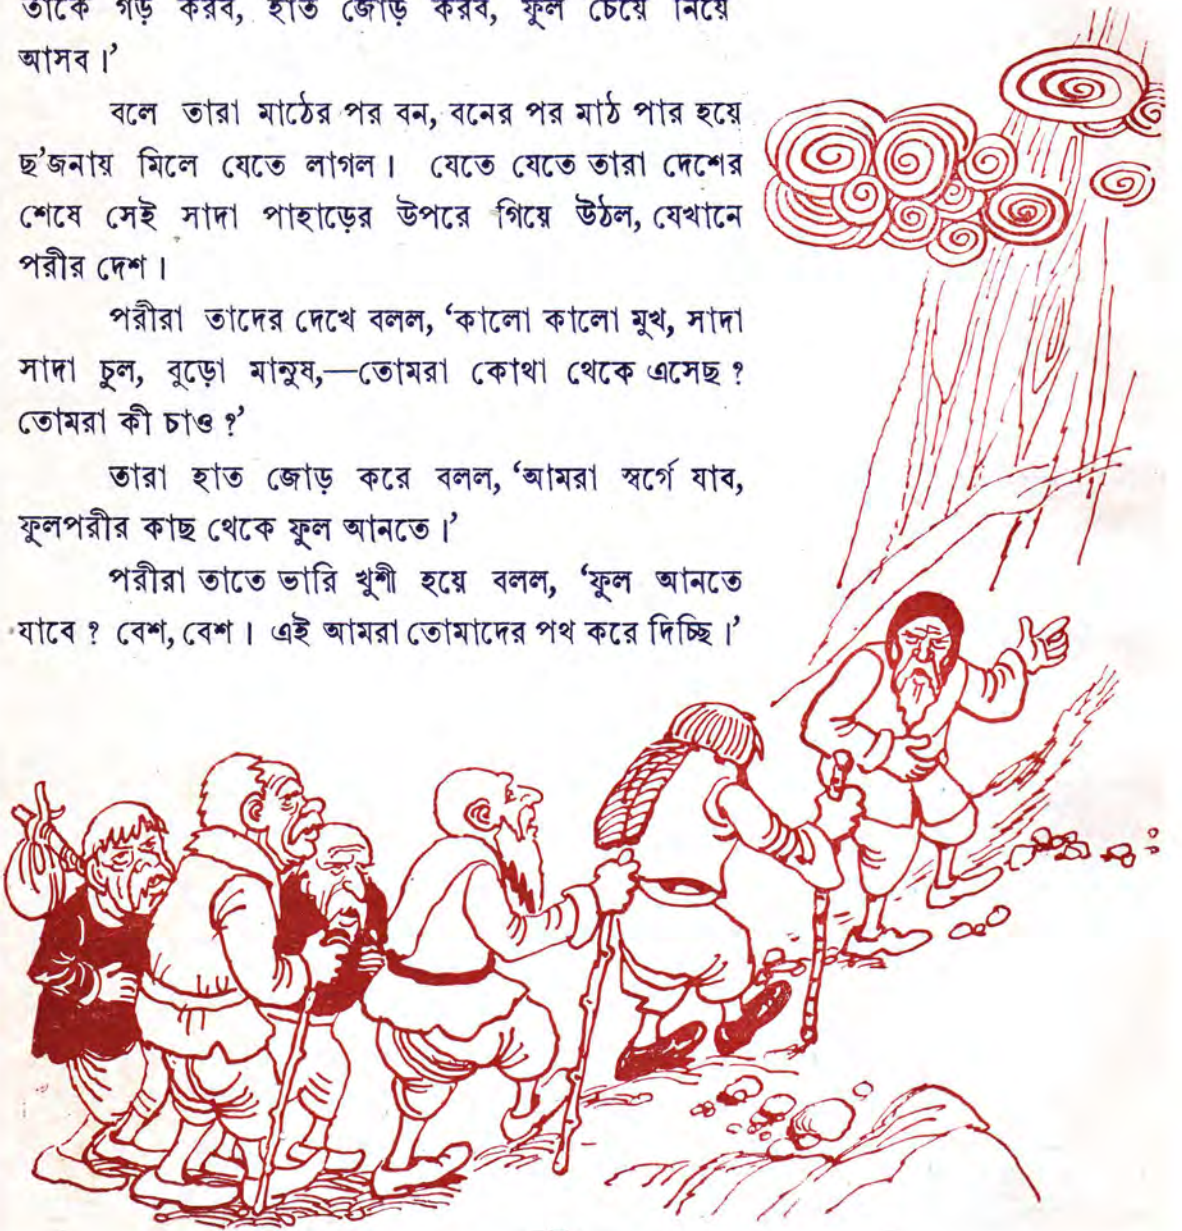 তাকে গড় করব, হাত জোড় করব, ফুল চেয়ে নিয়ে
আসব।’
বলে তারা মাঠের পর বন, বনের পর মাঠ পার হয়ে
ছ’জনায় মিলে যেতে লাগল। যেতে যেতে তারা দেশের
শেষে সেই সাদা পাহাড়ের উপরে গিয়ে উঠল, যেখানে
পরীর দেশ।
পরীরা তাদের দেখে বলল, ‘কালো কালো মুখ, সাদা
সাদা চুল, বুড়ো মানুষ,—তোমরা কোথা থেকে এসেছ?
তোমরা কী চাও?’
তারা হাত জোড় করে বলল, ‘আমরা স্বর্গে যাব,
ফুলপরীর কাছ থেকে ফুল আনতে।’
পরীরা তাতে ভারি খুশী হয়ে বলল, ‘ফুল আনতে
যাবে? বেশ, বেশ। এই আমরা তোমাদের পথ করে দিচ্ছি।’